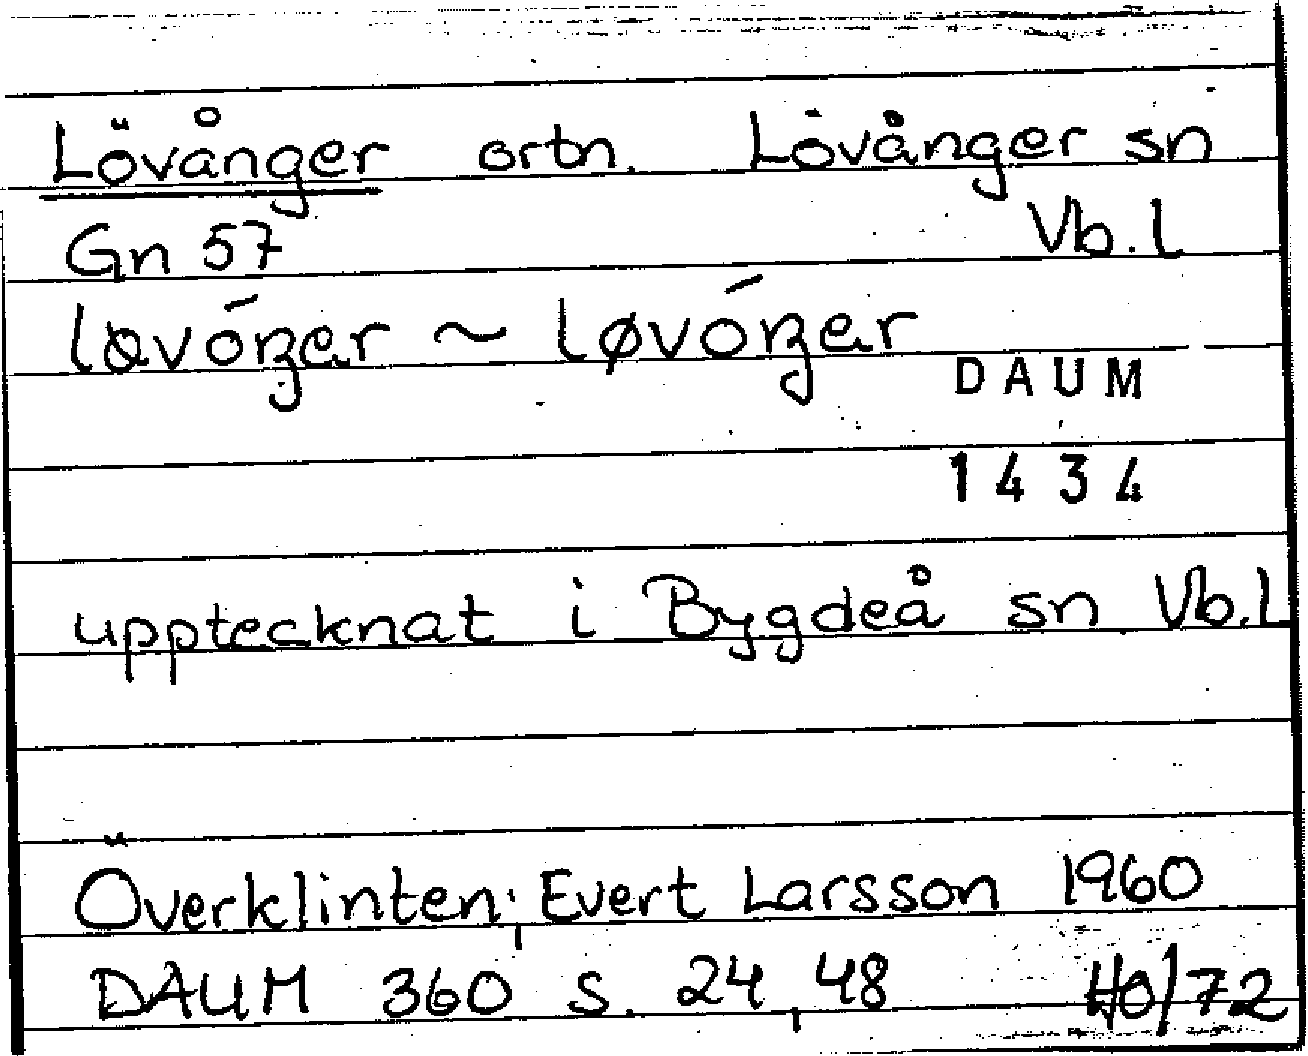 Lövånger ortn. Lövånger sn
Gn 57 Vb.l
ləvóŋər ~ løvóŋər
DAUM
1434
upptecknat i Bygdeå sn Vb.l
Överklinten; Evert Larsson 1960
DAUM 360 s. 24, 48 HO/72